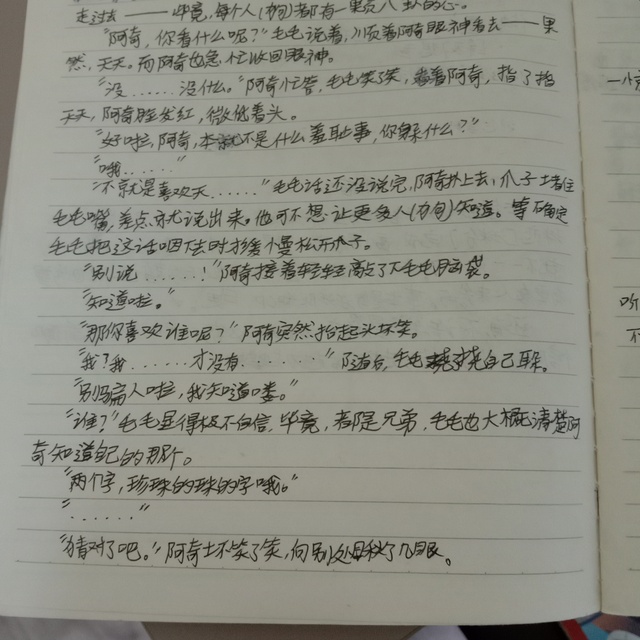 走过去——毕竟,每个人(狗)都有一颗八卦的心。
"阿奇,你看什么呢?"毛毛说着,顺着阿奇眼神看去——果
然,天天。而阿奇也急忙收回眼神。
"没……没什么。"阿奇忙答,毛毛笑了笑,看着阿奇,指了指
天天,阿奇脸发红,微低着头。
"好啦,阿奇,本就不是什么羞耻事,你躲什么?"
"哦……"
"不就是喜欢天……"毛毛话还没说完,阿奇扑上去,爪子堵住
毛毛嘴,差点就说出来。他可不想让更多人(狗)知道。等确定
毛毛把这话咽下去时才缓慢松开爪子。
"别说……!"阿奇接着轻轻敲了下毛毛脑袋。
"知道啦。"
"那你喜欢谁呢?"阿奇突然抬起头坏笑。
"我?我……才没有………"随后,毛毛挠挠自己耳朵。
"别骗人啦,我知道喽。"
"谁?"毛毛显得极不自信,毕竟,都是兄弟,毛毛也大概清楚阿
奇知道自己的那个。
"两个字,珍珠的珠的字哦。"
"……"
"猜对了吧。"阿奇坏笑了笑,向别处瞅了几眼。
一小
听
不